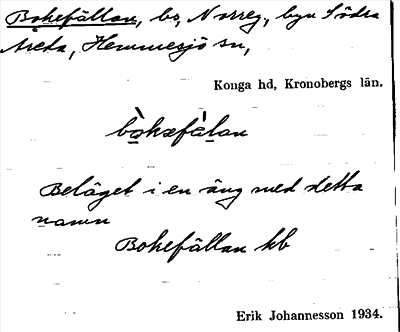 Bokefällan, bs, Norreg., byn Södra
Åreda, Hemmesjö sn,
Konga hd, Kronobergs län.
Beläget i en äng med detta
namn
Bokefällan kb
Erik Johannesson 1934.